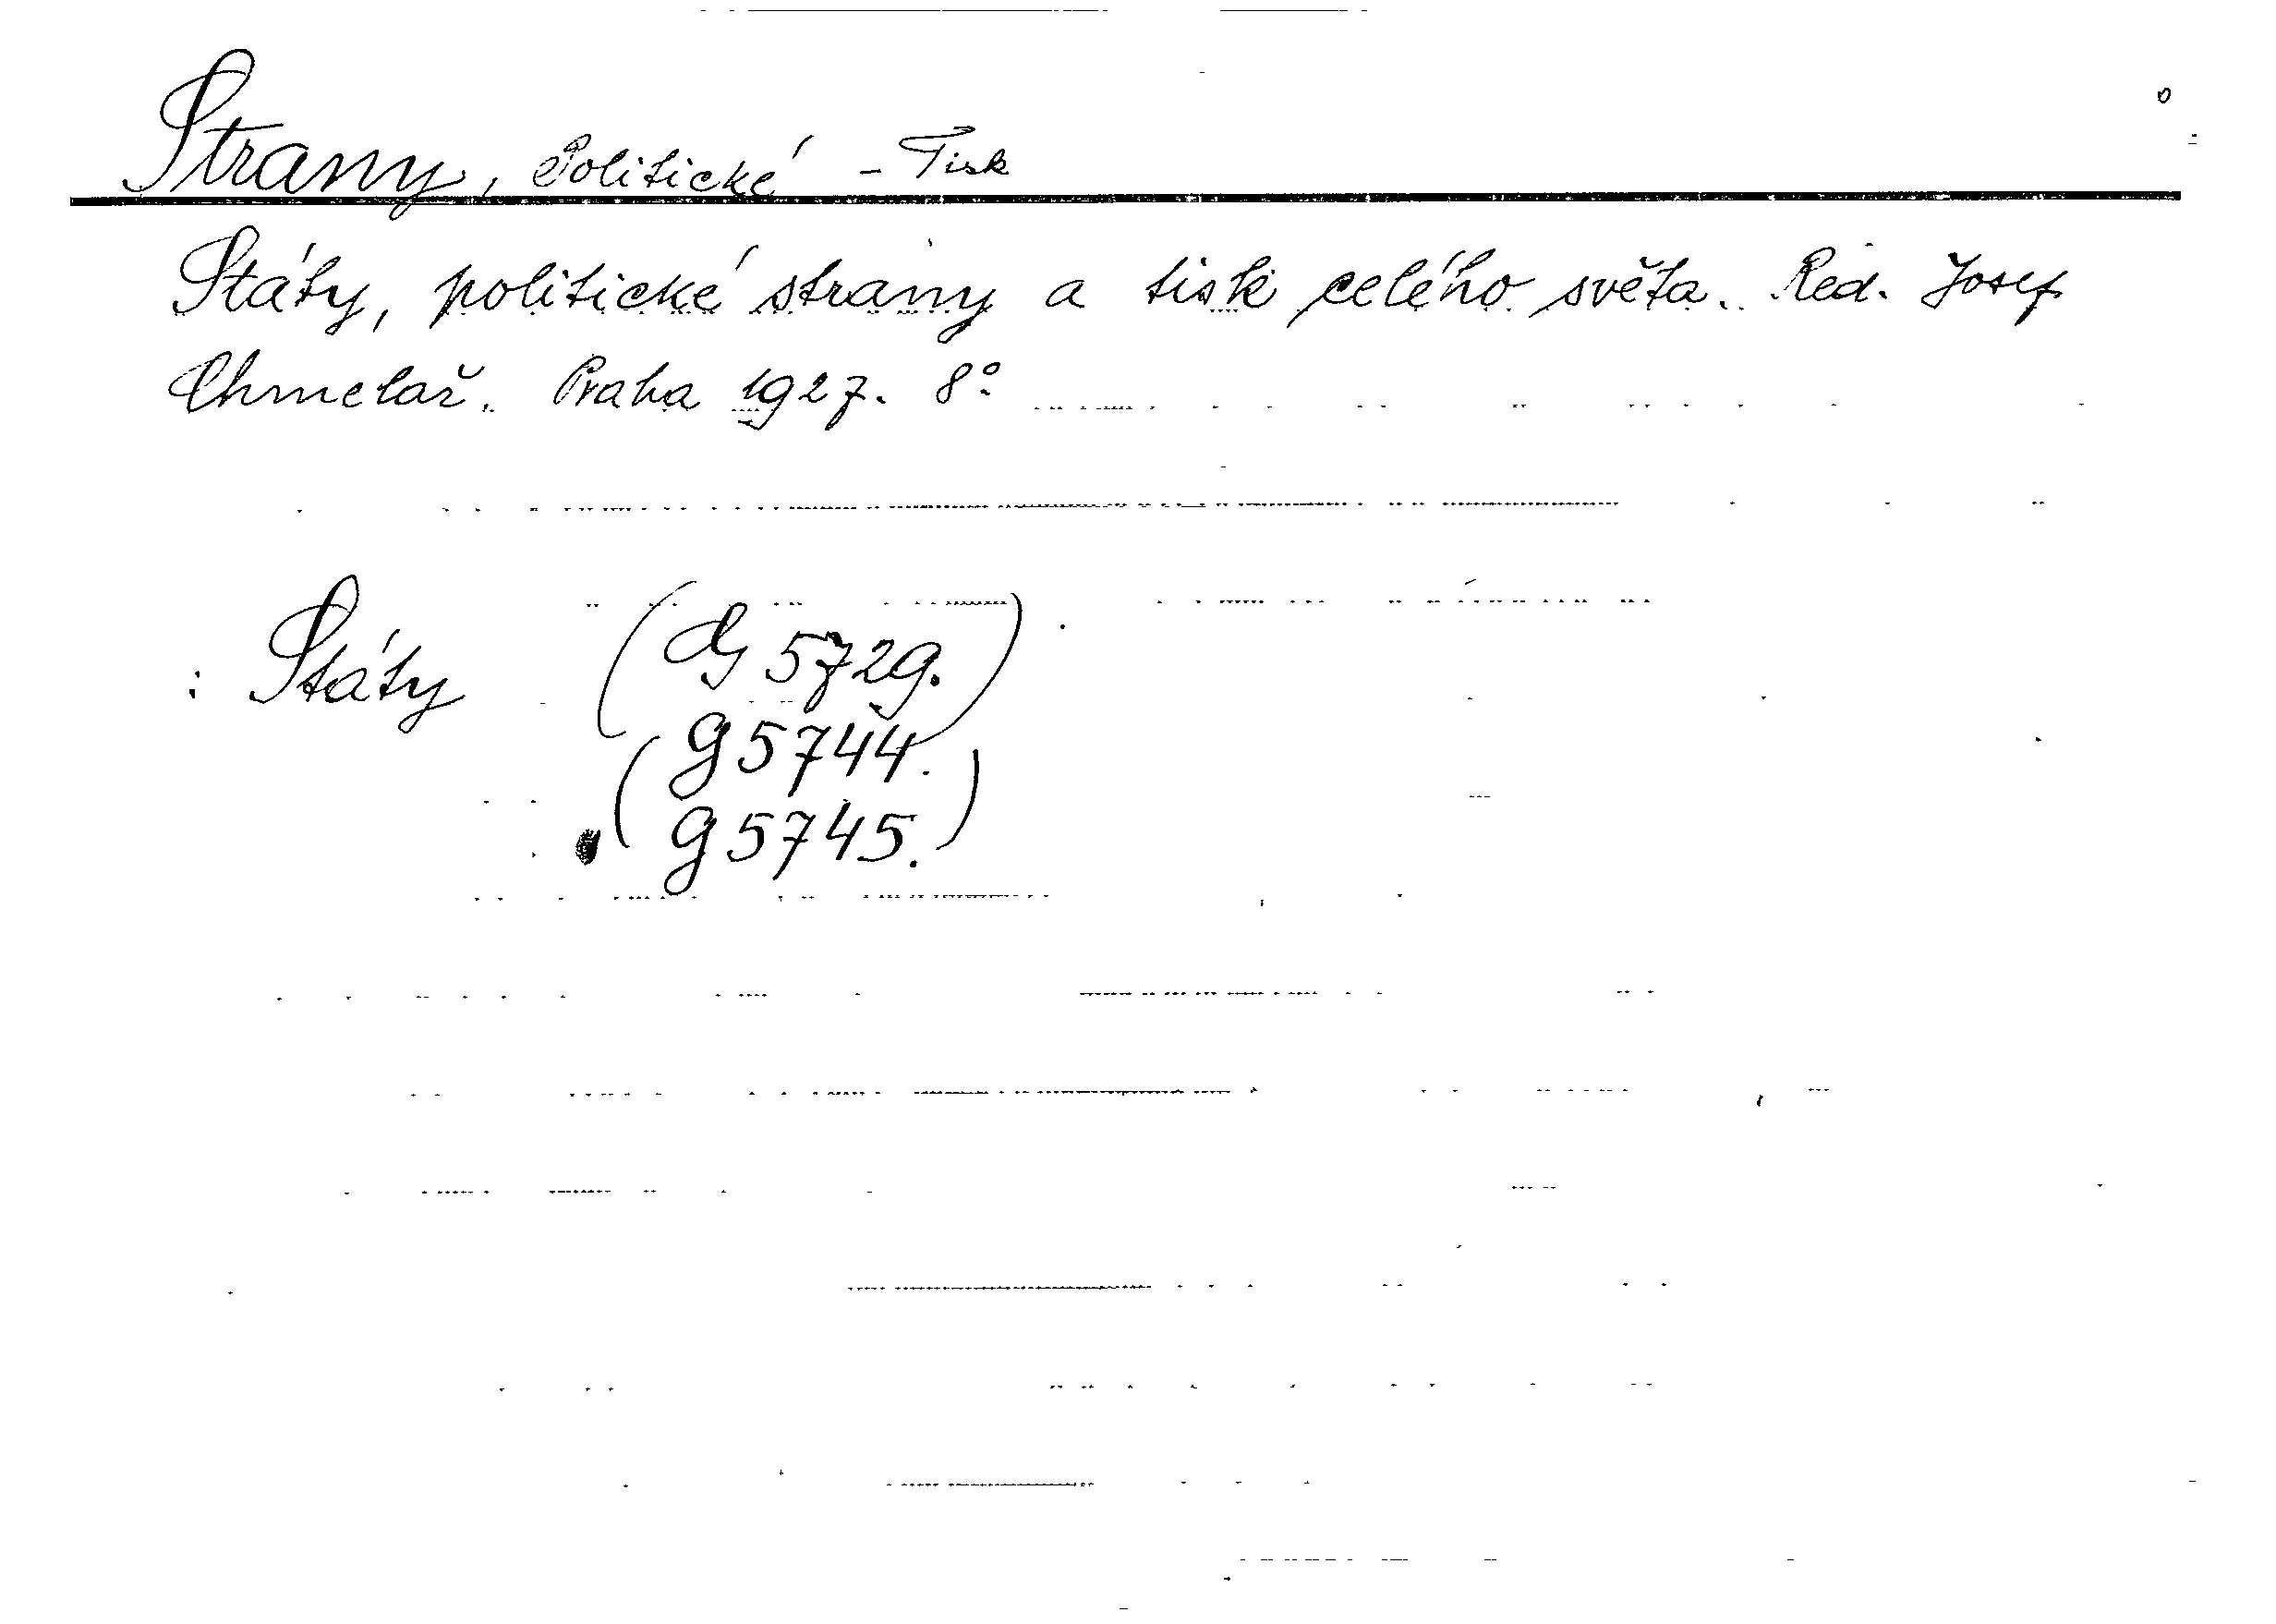 Strany, Politické - Tisk
Státy, politické strany a tisk celého světa. Red. Josef
Chmelař. Praha 1927. 8°
: Státy (G 5729.)
(g 5744.
g 5745.)